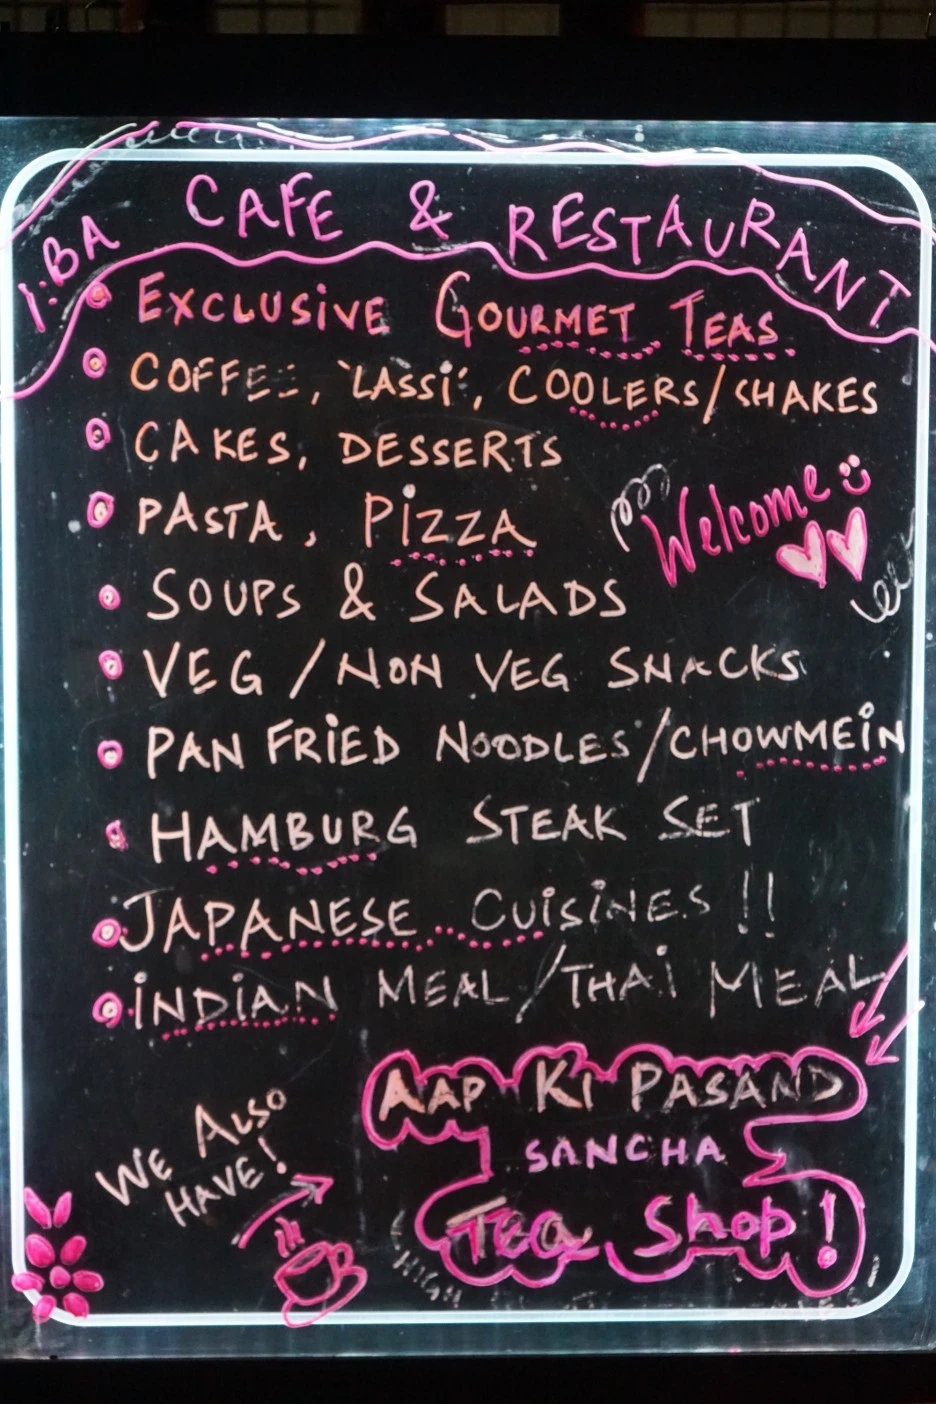 1:BA CAFE & RESTAURANT
EXCLUSIVE GOURMET TEAS
COFFEE, 'LASSI', COOLERS/SHAKES
CAKES, DESSERTS
PASTA, PIZZA
Welcome
SOUPS & SALADS
VEG / NON VEG SNACKS
PAN FRIED NOODLES/CHOWMEIN
HAMBURG STEAK SET
JAPANESE CUISINES !!
INDIAN MEAL/THAI MEAL
WE ALSO HAVE!
AAP KI PASAND
SANCHA
Tea Shop!
HIGH